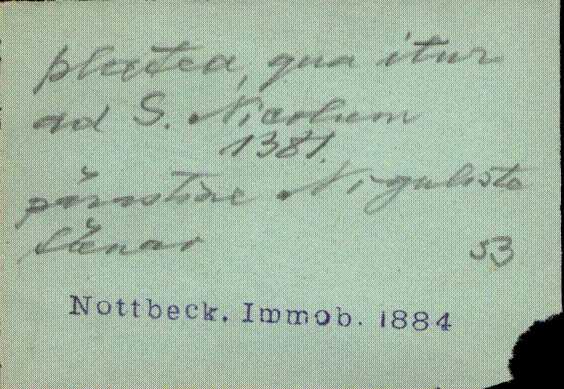 platea, qua itur
ad S. Nicolaum
1381.
pärastine Niguliste
tänav 53
Nottbeck. Immob. 1884